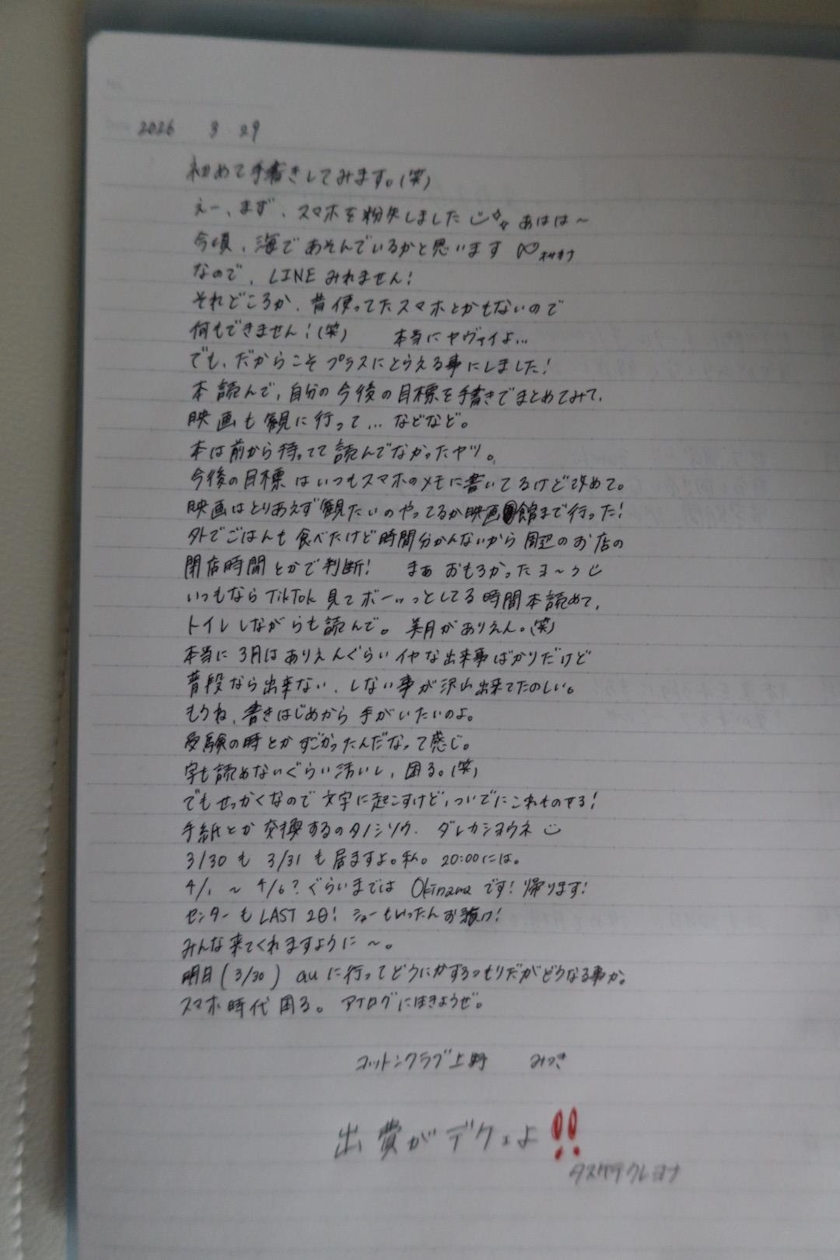 2026 3 29
初めて手書きしてみます。(笑)
えー、まず、スマホを紛失しました あはは〜
今頃、海であそんでいるかと思います
なので、LINEみれません!
それどころか、昔使ってたスマホとかもないので
何もできません!(笑) 本当にヤヴァイよ...
でも、だからこそプラスにとらえる事にしました!
本読んで、自分の今後の目標を手書きでまとめてみて、
映画も観に行って... などなど。
本は前から持ってて読んでなかったヤツ。
今後の目標はいつもスマホのメモに書いてるけど改めて。
映画はとりあえず観たいのやってるか映画館まで行った!
外でごはんも食べたけど時間分かんないから周辺のお店の
閉店時間とかで判断! まぁおもろかったヨ〜ゥ
いつもならTikTok見てボーッっとしてる時間本読めて、
トイレしながらも読んで。美月がありえん。(笑)
本当に3月はありえんぐらいイヤな出来事ばかりだけど
普段なら出来ない、しない事が沢山出来てたのしい。
もうね、書きはじめから手がいたいのよ。
受験の時とかすごかったんだなって感じ。
字も読めないぐらい汚いし、困る。(笑)
でもせっかくなので文字に起こすけど、ついでにこれものせる!
手紙とか交換するのタノシソウ、ダレカショウネ
3/30も3/31も居ますよ。私。20:00には。
4/1 〜 4/6?ぐらいまではOkinawaです!帰ります!
センターもLAST 2日! ショーもいったんお預け!
みんな来てくれますように〜。
明日(3/30) auに行ってどうにかするつもりだがどうなる事か。
スマホ時代困る。アナログにはきようぜ。
コットンクラブ上野 みつき
出費がデケェよ!!
タスケテクレヨナ